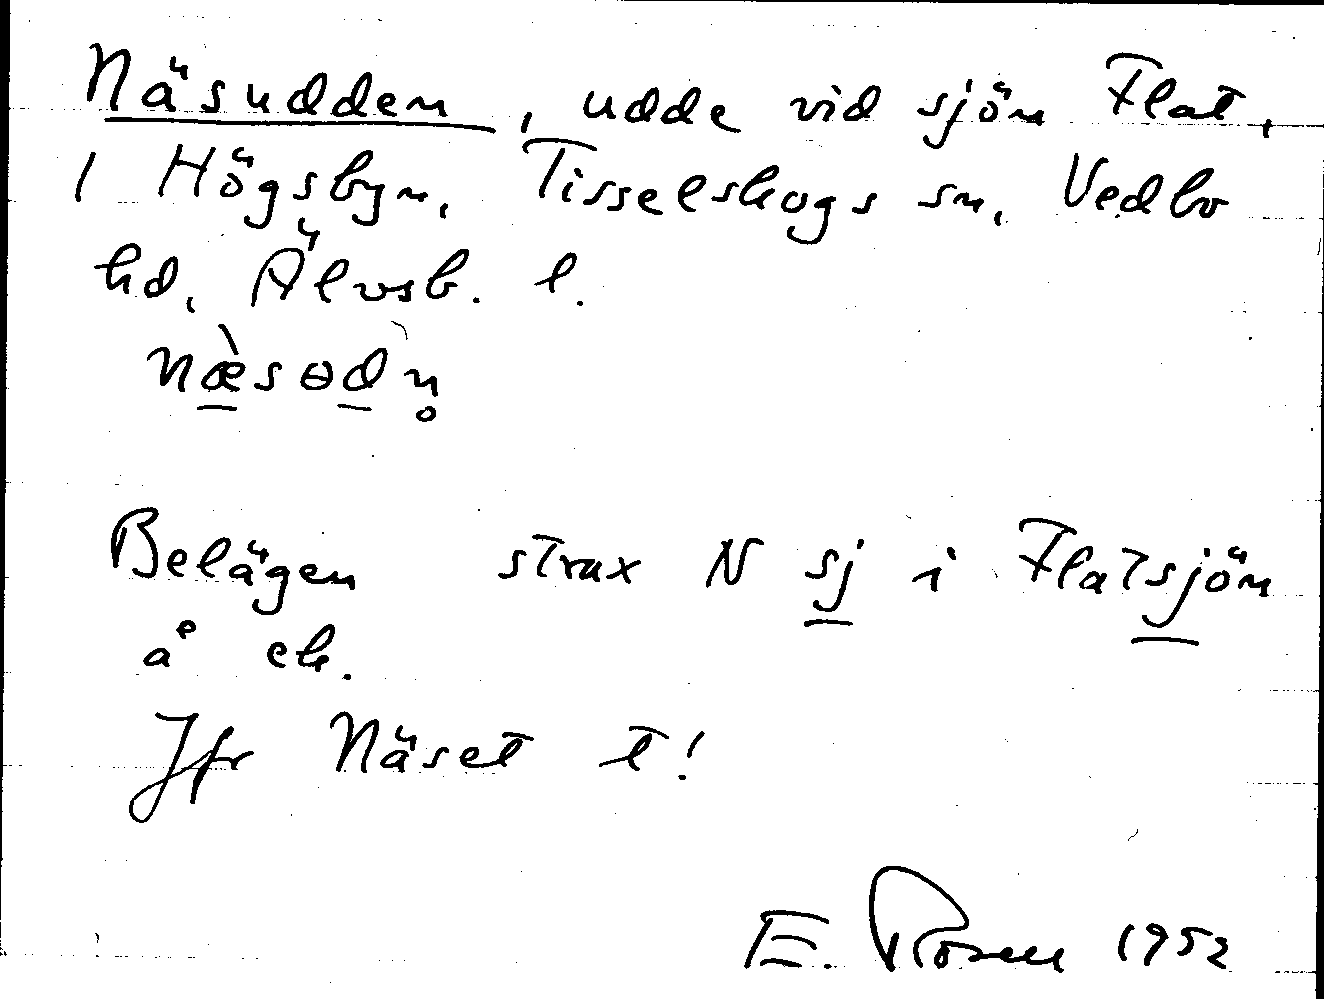 Näsudden, udde vid sjön Flat,
i Högsbyn, Tisselskogs sn, Vedbo
hd, Älvsb. l.
næ̀sɵdn̥
Belägen strax N sj i Flatsjön
å ek.
Jfr Näset t!
E. Rosell 1952